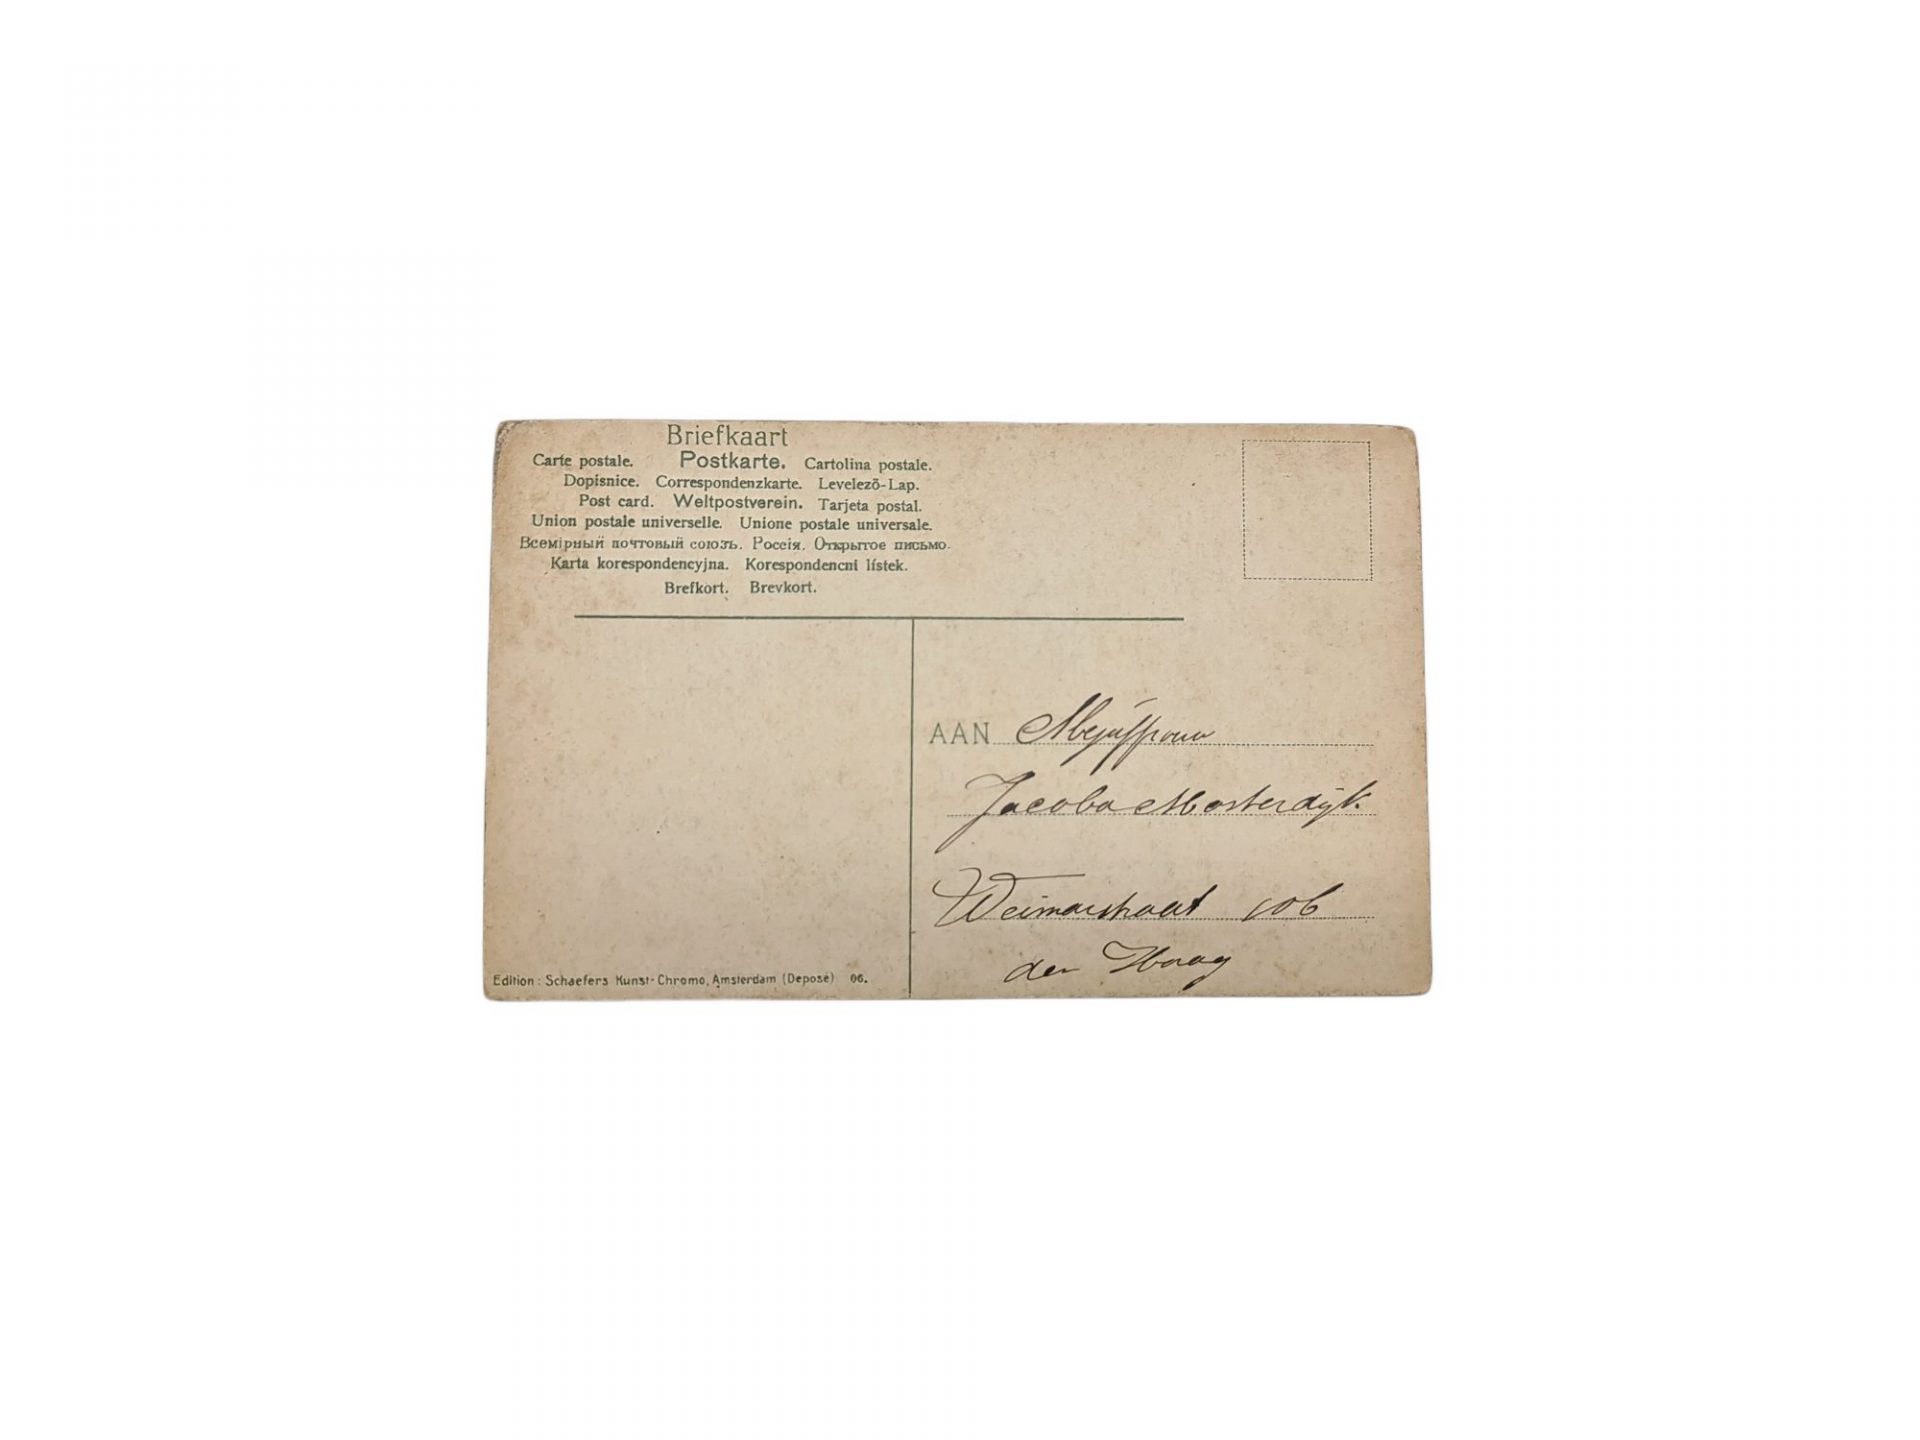 Briefkaart
Carte postale. Postkarte. Cartolina postale.
Dopisnice. Correspondenzkarte. Levelezõ-Lap.
Post card. Weltpostverein. Tarjeta postal.
Union postale universelle. Unione postale universale.
Всемірный почтовый союзъ. Россія. Открытое письмо.
Karta korespondencyjna. Korespondencni lístek.
Brefkort. Brevkort.
AAN Mejuffrouw
Jacoba Mosterdijk
Weimarstraat 106
den Haag
Edition: Schaefers Kunst-Chromo, Amsterdam (Deposé) 06.